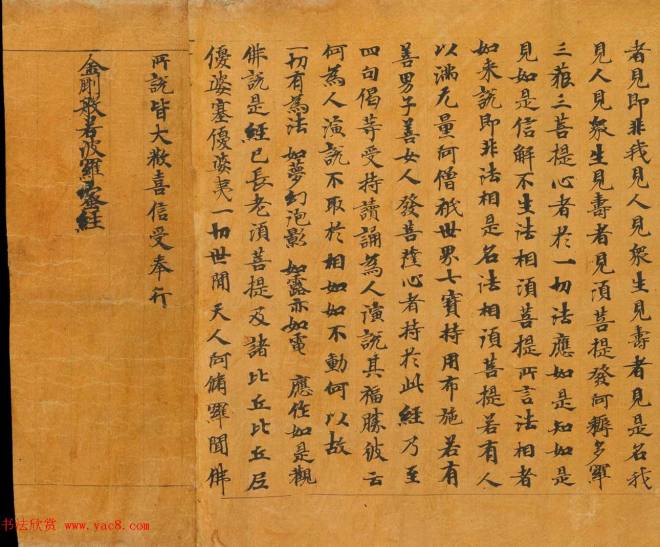 者見即非我見人見衆生見壽者見是名我
見人見衆生見壽者見須菩提發阿耨多羅
三藐三菩提心者於一切法應如是知如是
見如是信解不生法相須菩提所言法相者
如來說即非法相是名法相須菩提若有人
以滿无量阿僧祇世界七寶持用布施若有
善男子善女人發菩薩心者持於此經乃至
四句偈等受持讀誦為人演說其福勝彼云
何為人演說不取於相如如不動何以故
一切有為法 如夢幻泡影 如露亦如電 應作如是觀
佛說是經已長老須菩提及諸比丘比丘尼
優婆塞優婆夷一切世間天人阿脩羅聞佛
所說皆大歡喜信受奉行
金剛般若波羅蜜經
书法欣赏 www.yac8.com